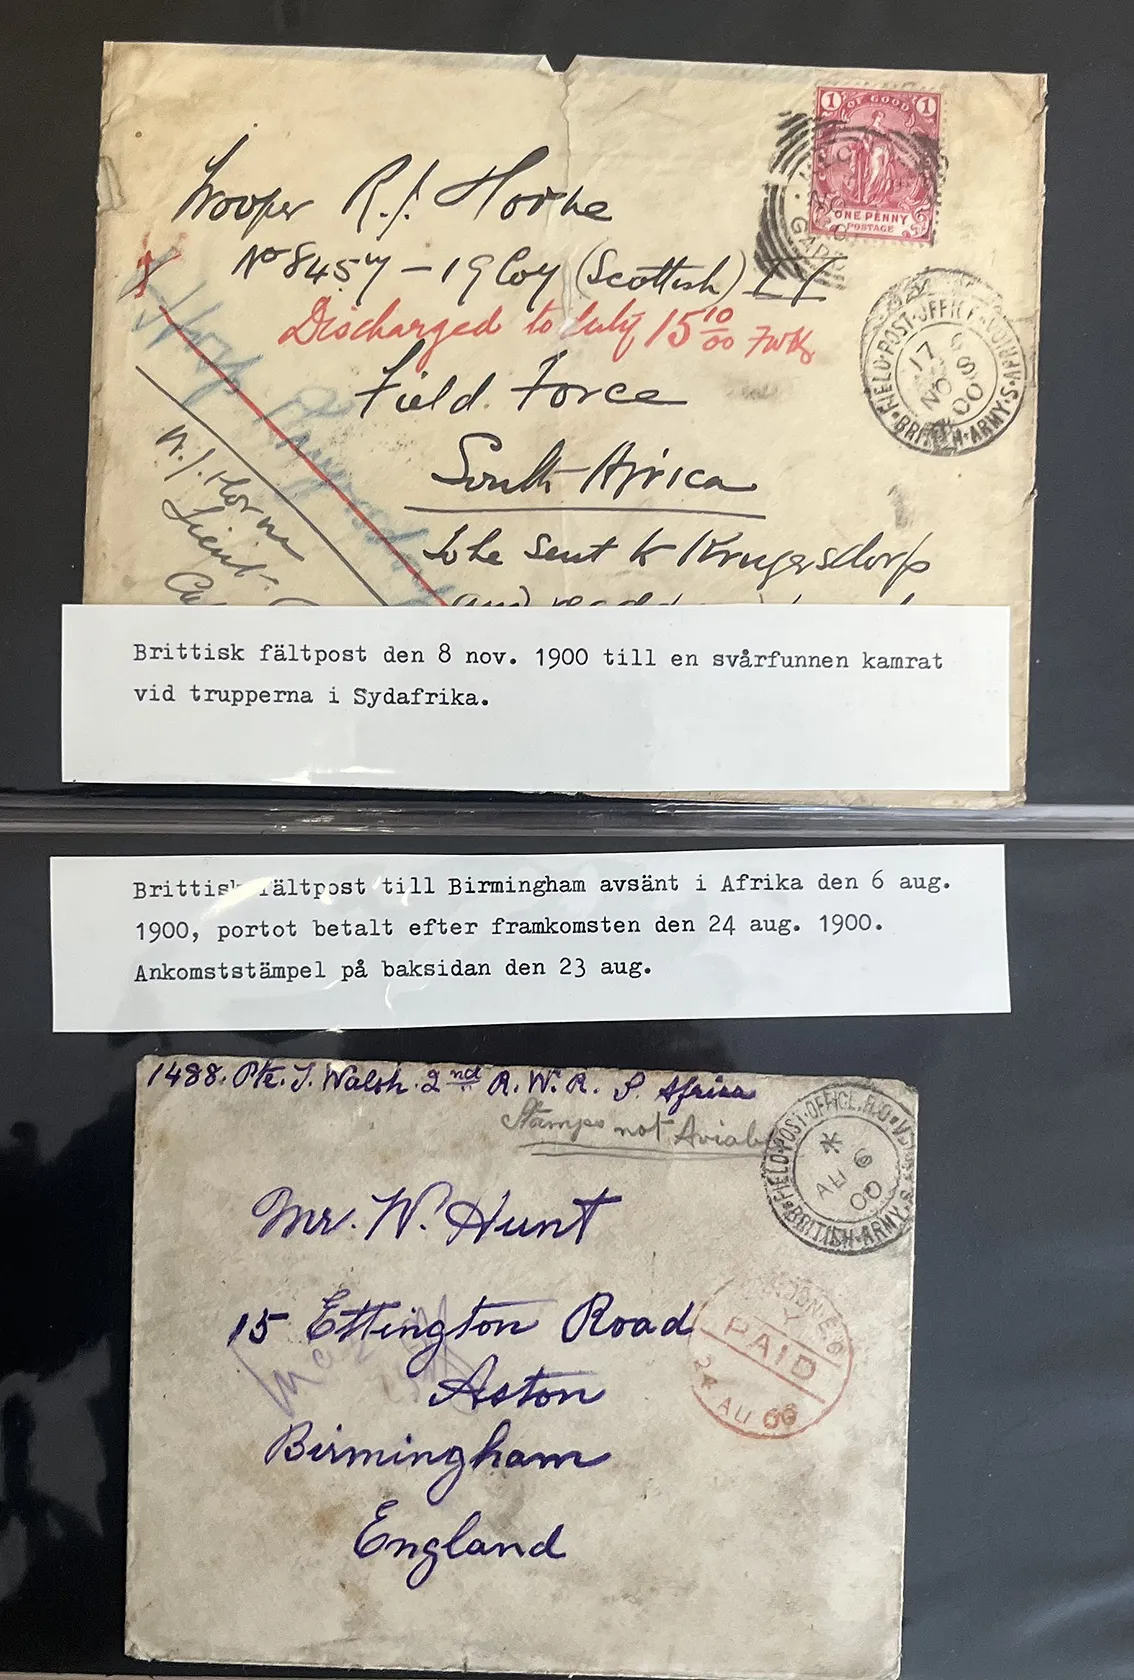 1 OF GOOD 1
ONE PENNY
POSTAGE
Trooper R.J. Horne
No 8457 – 19 Coy (Scottish)
Discharged to duty 15 10/00
Field Force
South Africa
FIELD·POST·OFFICE
BRITISH·ARMY·S·AFRICA
17
NO
00
Krugersdorp
W.J. Horne
Lieut.
to be sent to Krugersdorp
Brittisk fältpost den 8 nov. 1900 till en svårfunnen kamrat
vid trupperna i Sydafrika.
Brittisk fältpost till Birmingham avsänt i Afrika den 6 aug.
1900, portot betalt efter framkomsten den 24 aug. 1900.
Ankomststämpel på baksidan den 23 aug.
1488. Pte. J. Walsh. 2nd R. W. R. S. Africa
Stamps not
FIELD·POST·OFFICE
BRITISH·ARMY·S
*
AU 6
00
Mr. W. Hunt
15 Ettington Road
PAID
24 AU 00
Aston
Birmingham
England